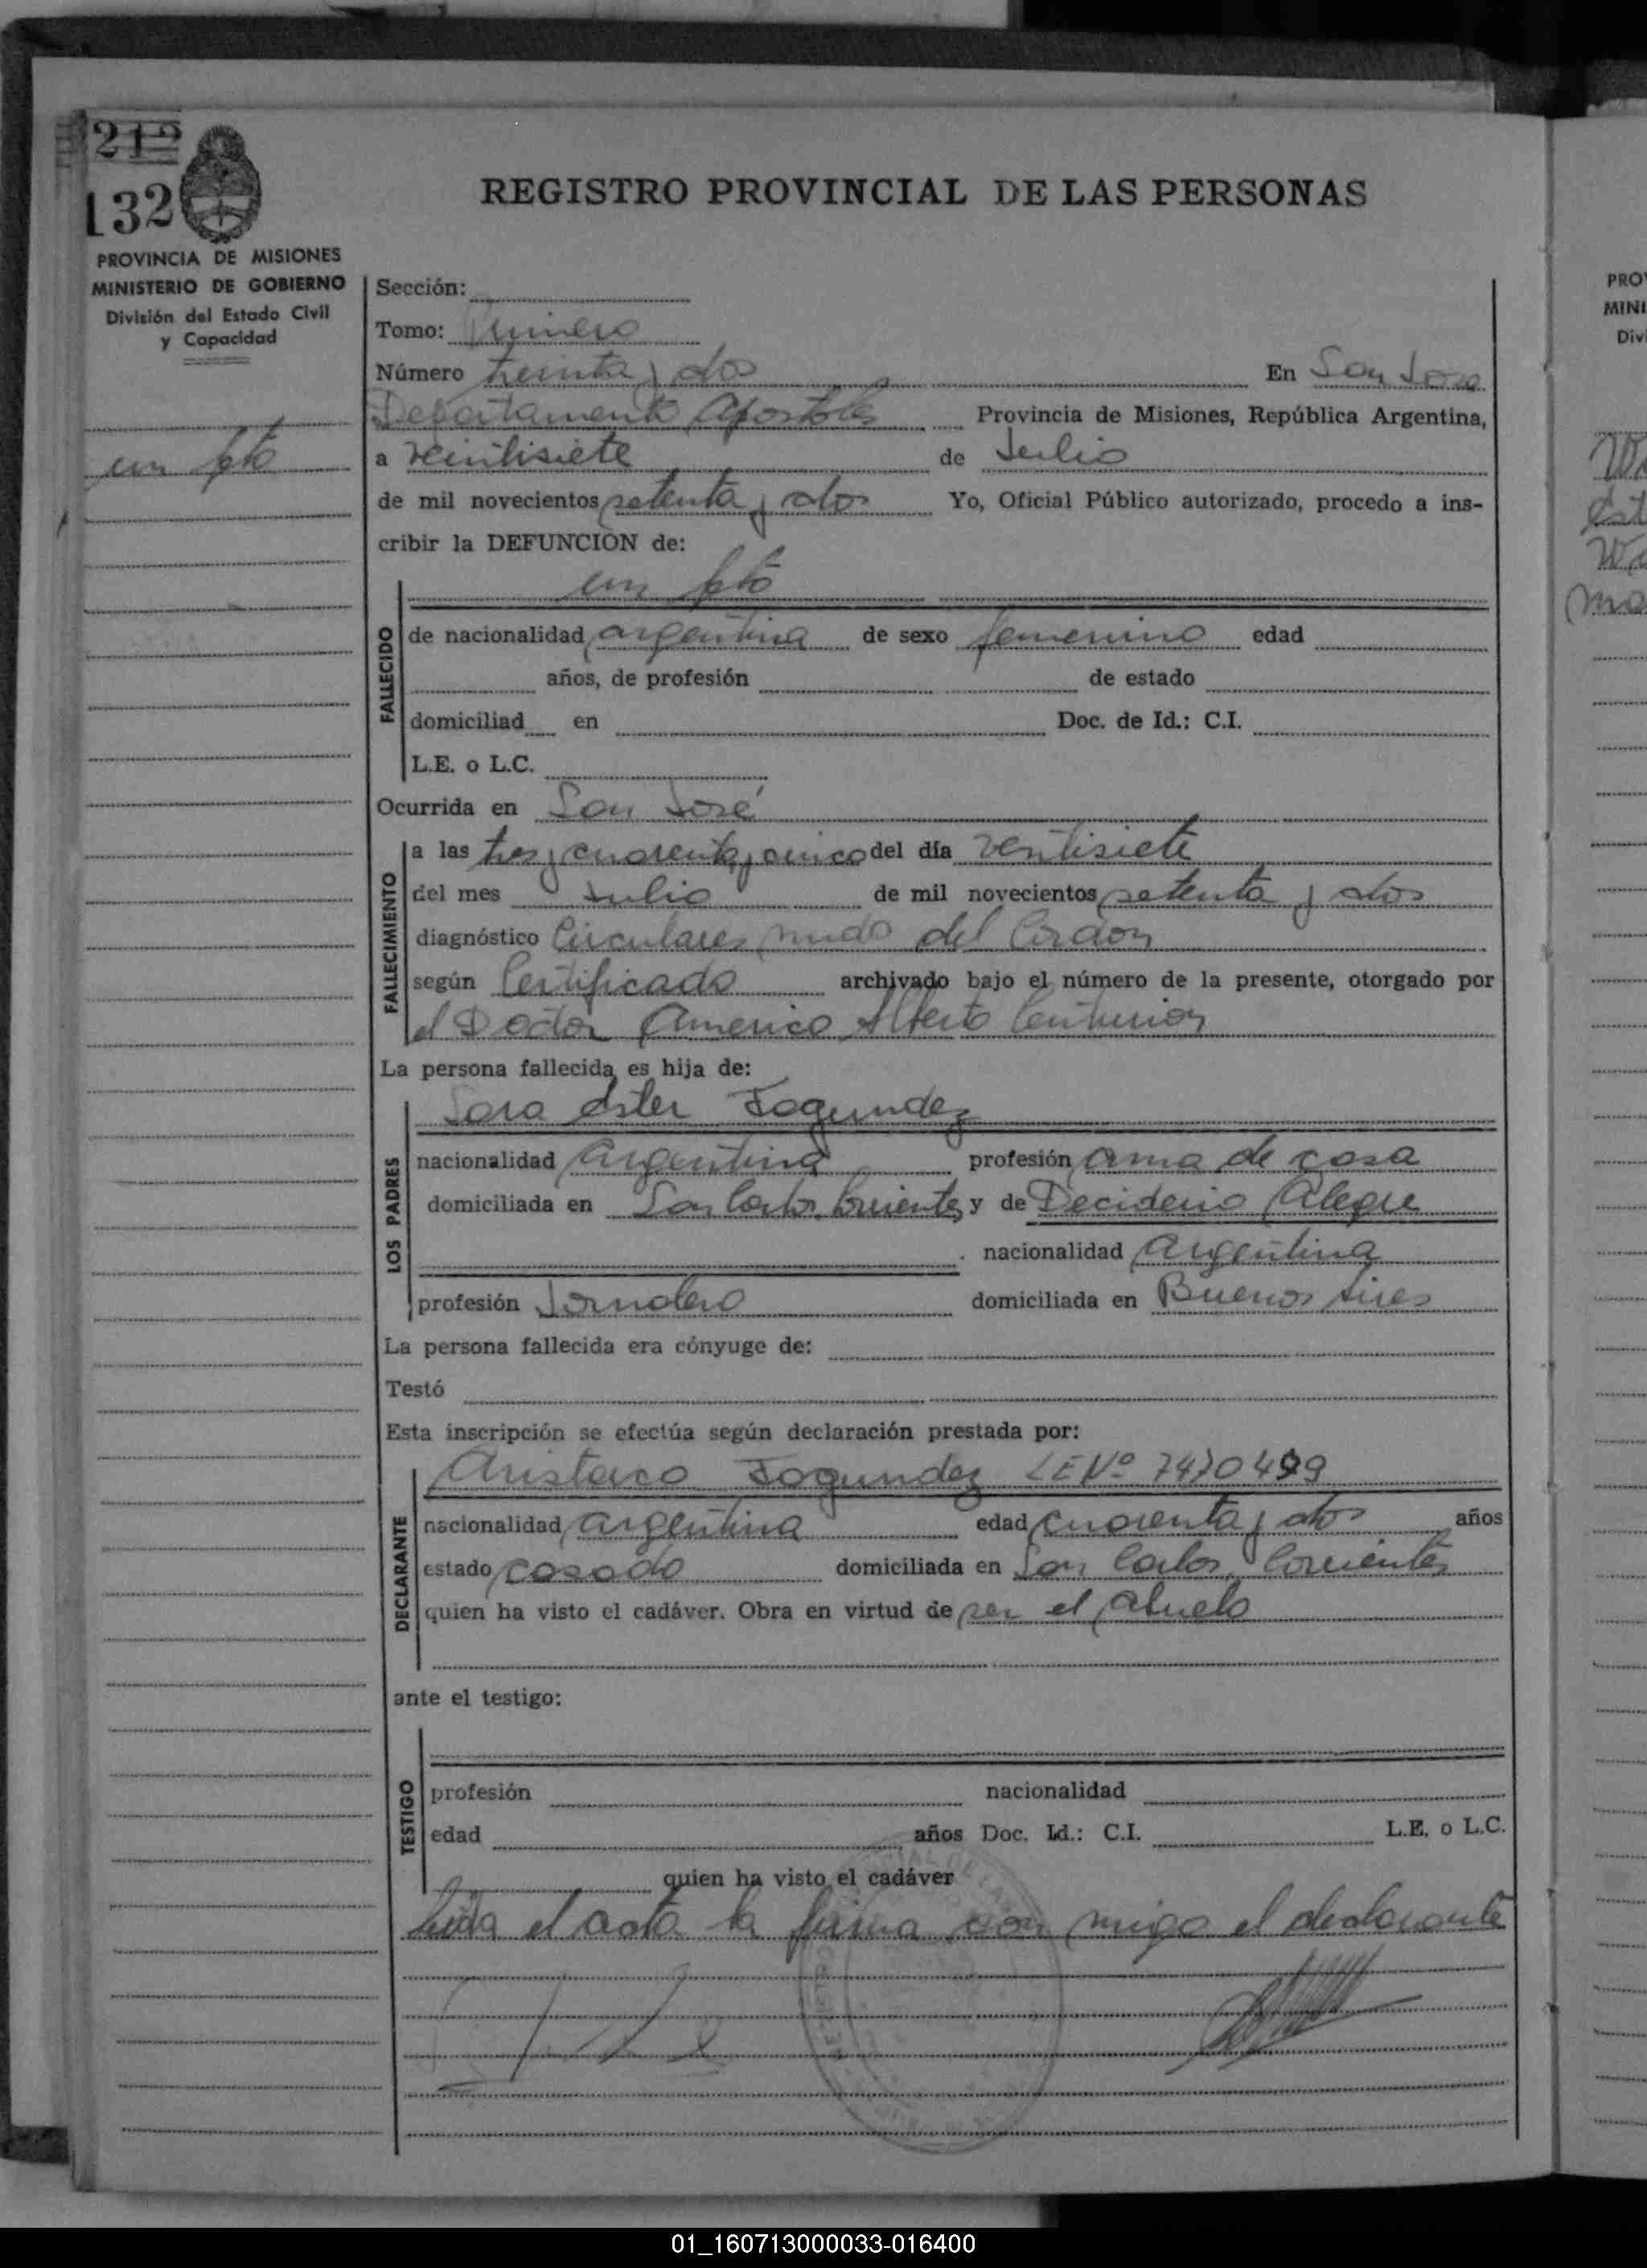 212
132
REGISTRO PROVINCIAL DE LAS PERSONAS
PROVINCIA DE MISIONES
MINISTERIO DE GOBIERNO
División del Estado Civil
y Capacidad
un feto
Sección:
Tomo: Primero
Número treinta y dos En San José
Departamento Apostoles Provincia de Misiones, República Argentina,
a veintisiete de Julio
de mil novecientos setenta y dos Yo, Oficial Público autorizado, procedo a ins-
cribir la DEFUNCION de:
un feto
FALLECIDO
de nacionalidad argentina de sexo femenino edad
años, de profesión de estado
domiciliad en Doc. de Id.: C.I.
L.E. o L.C.
Ocurrida en San José
FALLECIMIENTO
a las tres y cuarenta y cinco del día ventisiete
del mes Julio de mil novecientos setenta y dos
diagnóstico Circulares nudo del Cordon
según Certificado archivado bajo el número de la presente, otorgado por
el Doctor Americo Alberto Centurion
La persona fallecida es hija de:
LOS PADRES
Sara Ester Fagundez
nacionalidad argentina profesión ama de casa
domiciliada en San Carlos, Corrientes y de Deciderio Alegre
nacionalidad Argentina
profesión Jornalero domiciliada en Buenos Aires
La persona fallecida era cónyuge de:
Testó
Esta inscripción se efectúa según declaración prestada por:
DECLARANTE
Aristarco Fagundez LE Nº
nacionalidad argentina edad cuarenta y dos años
estado casado domiciliada en San Carlos, Corrientes
quien ha visto el cadáver. Obra en virtud de ser el abuelo
ante el testigo:
TESTIGO
profesión nacionalidad
edad años Doc. Id.: C.I. L.E. o L.C.
quien ha visto el cadáver
leida el acta la firma con migo el declarante
PRO
MINI
Div
01_160713000033-016400